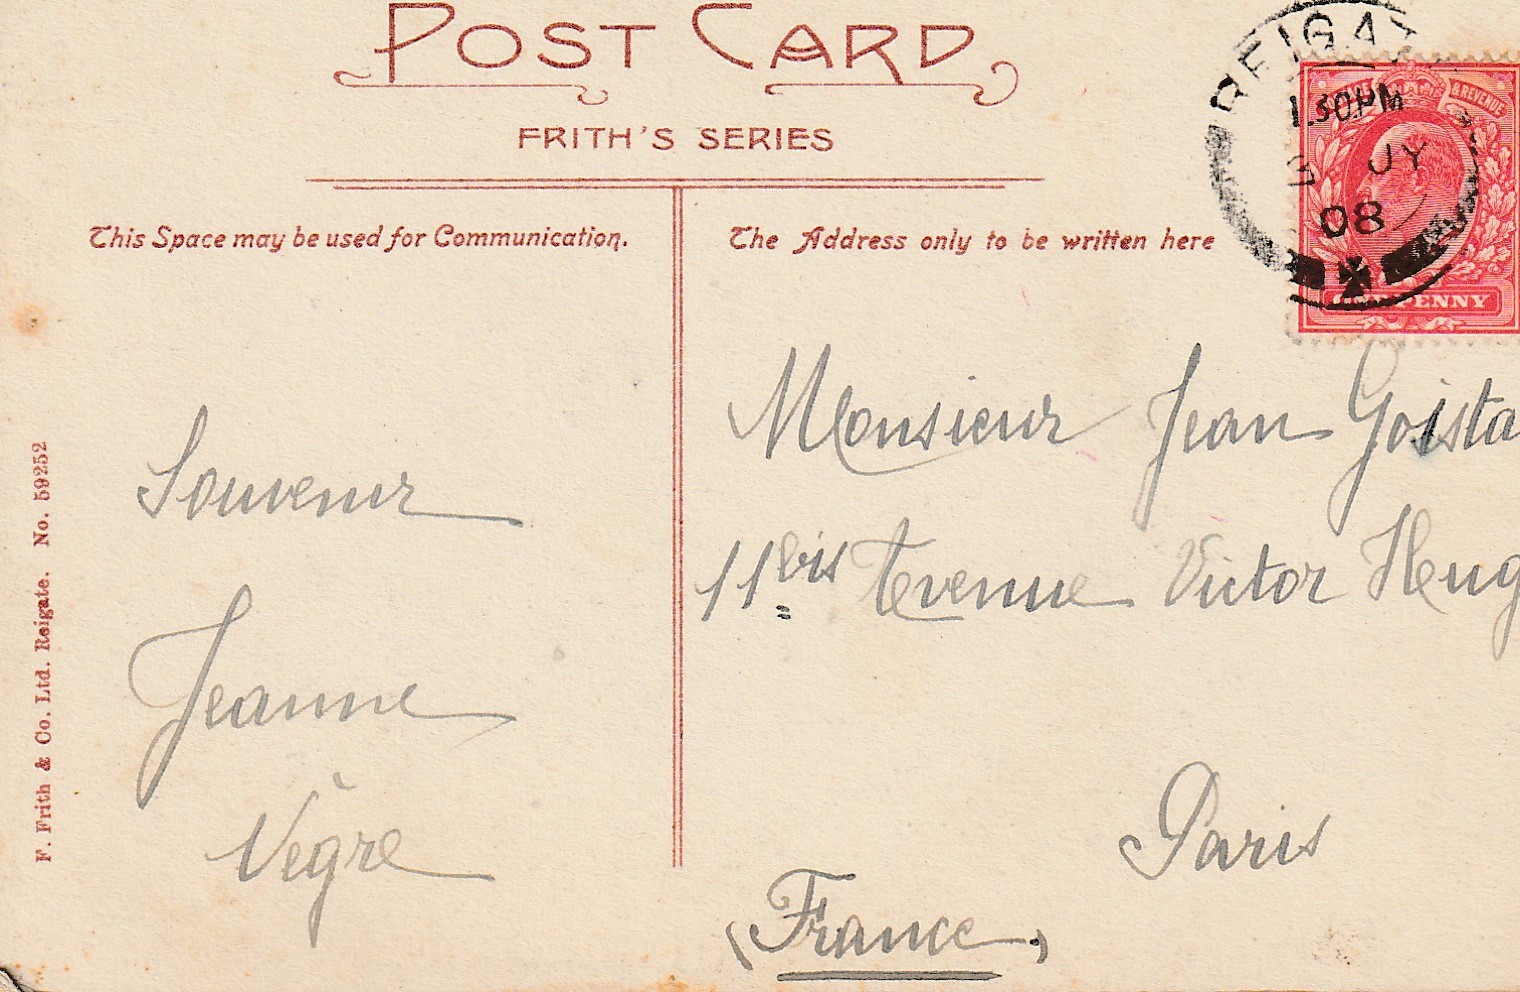 POST CARD
FRITH'S SERIES
This Space may be used for Communication.
The Address only to be written here
REIGAT
1.30PM
JY
08
& REVENUE
ONE PENNY
Souvenir
Jeanne
Nègre
Monsieur Jean Goista
11 bis Avenue Victor Hug
Paris
(France)
F. Frith & Co. Ltd. Reigate. No. 59252